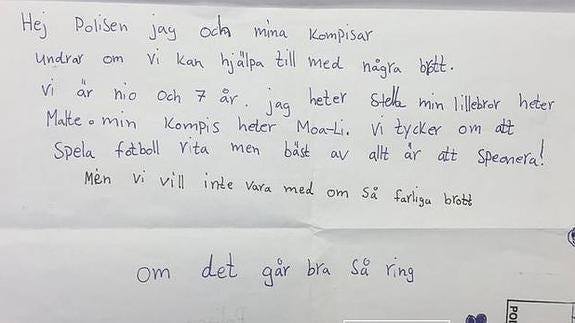 Hej Polisen jag och mina kompisar
undrar om vi kan hjälpa till med några brott.
vi är nio och 7 år. jag heter Stella min lillebror heter
Malte o min kompis heter Moa-Li. vi tycker om att
Spela fotboll rita men bäst av allt är att Speonera!
Men vi vill inte vara med om så farliga brott
om det går bra så ring